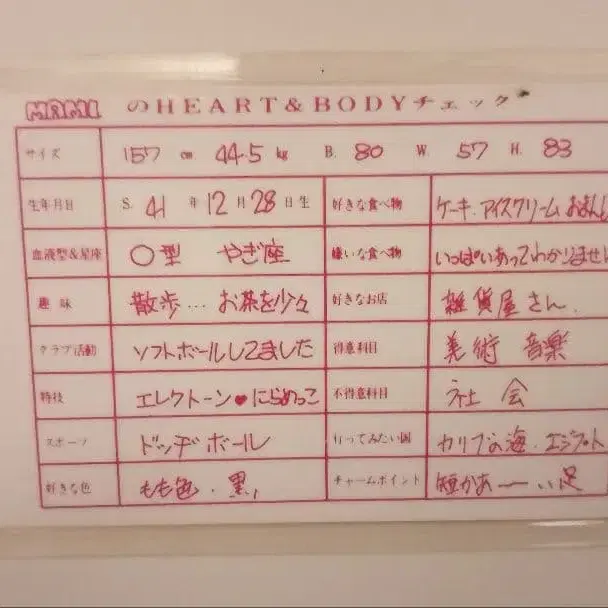 MAMI のHEART&BODYチェック
サイズ 157 cm 44.5 kg B. 80 W. 57 H. 83
生年月日 S. 41 年 12 月 28 日生 好きな食べ物 ケーキ.アイスクリーム
血液型&星座 O型 やぎ座 嫌いな食べ物 いっぱいあってわかりません
趣味 散歩… お茶を少々 好きなお店 雑貨屋さん.
クラブ活動 ソフトボールしてました 得意科目 美術 音楽
特技 エレクトーン♥にらめっこ 不得意科目 社会
スポーツ ドッヂボール 行ってみたい国 カリブの海.エジプト
好きな色 もも色.黒, チャームポイント 短かあーーい足